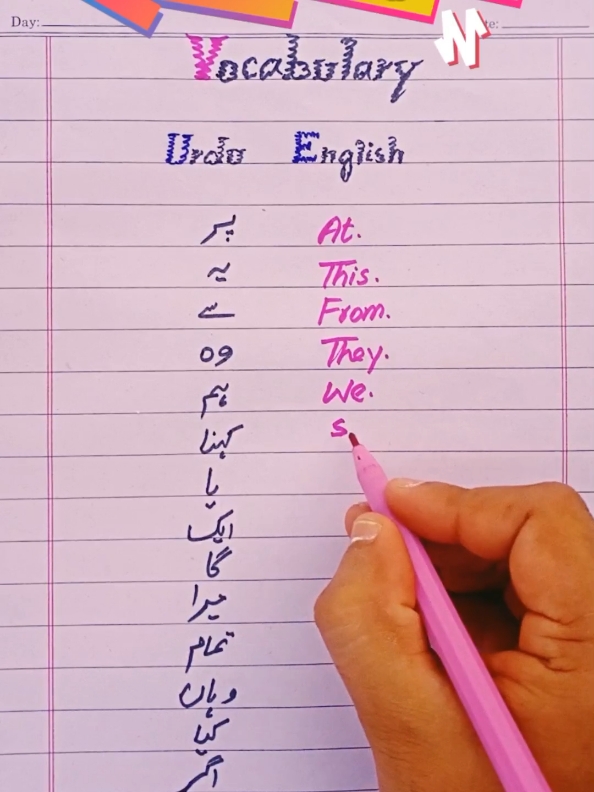 Day: te:
Vocabulary
Urdu English
پر At.
یہ This.
سے From.
وہ They.
ہم We.
کہنا S
یا
ایک
گا
میرا
تمام
وہاں
کیا
اگر